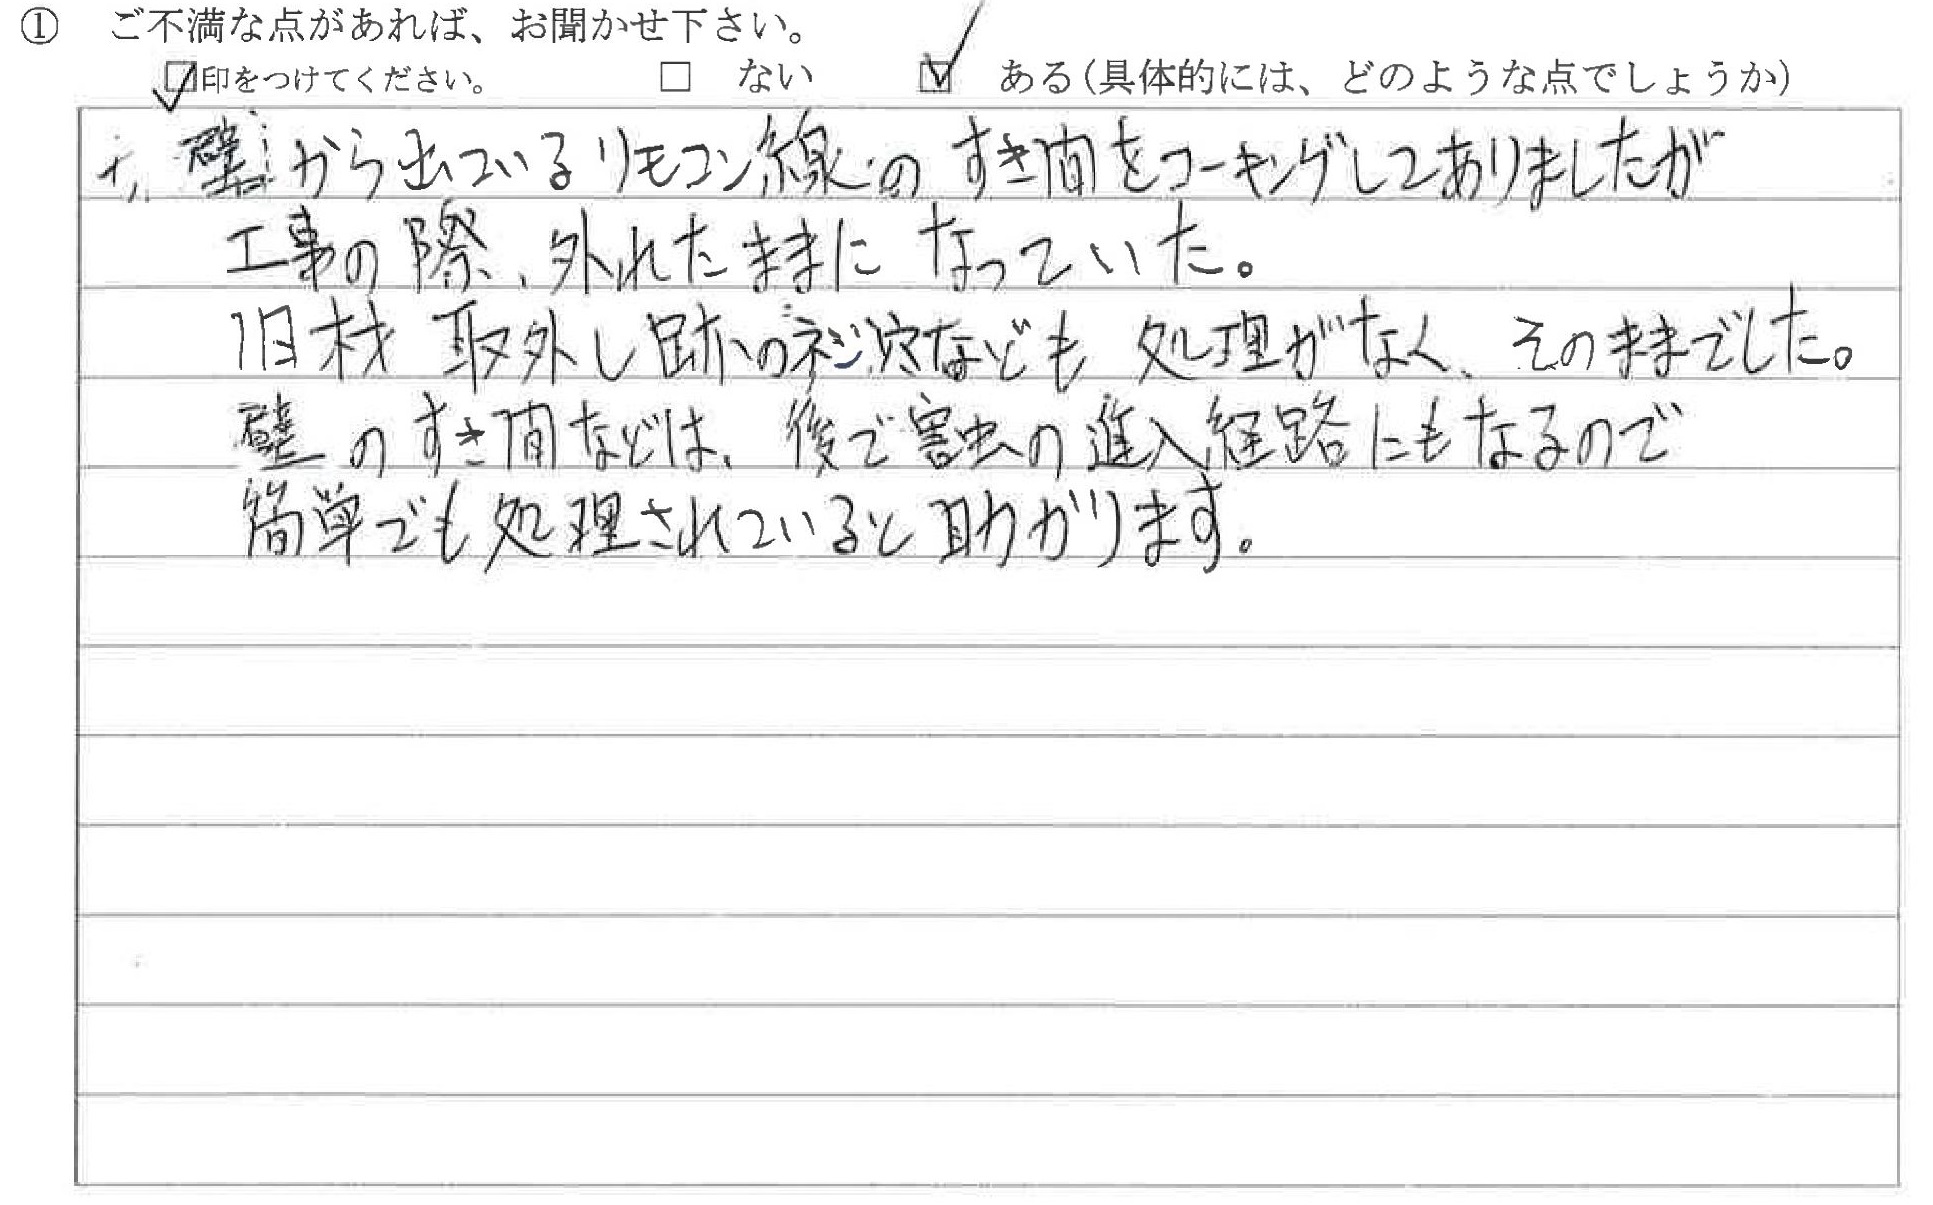 ① ご不満な点があれば、お聞かせ下さい。
☑印をつけてください。 □ ない ☑ ある(具体的には、どのような点でしょうか)
壁から出ているリモコン線の すき間をコーキングしてありましたが
工事の際、外れたままに なっていた。
旧材 取外し跡のネジ穴なども 処理がなく、そのままでした。
壁のすき間などは、後で害虫の進入経路にもなるので
簡単でも処理されていると助かります。